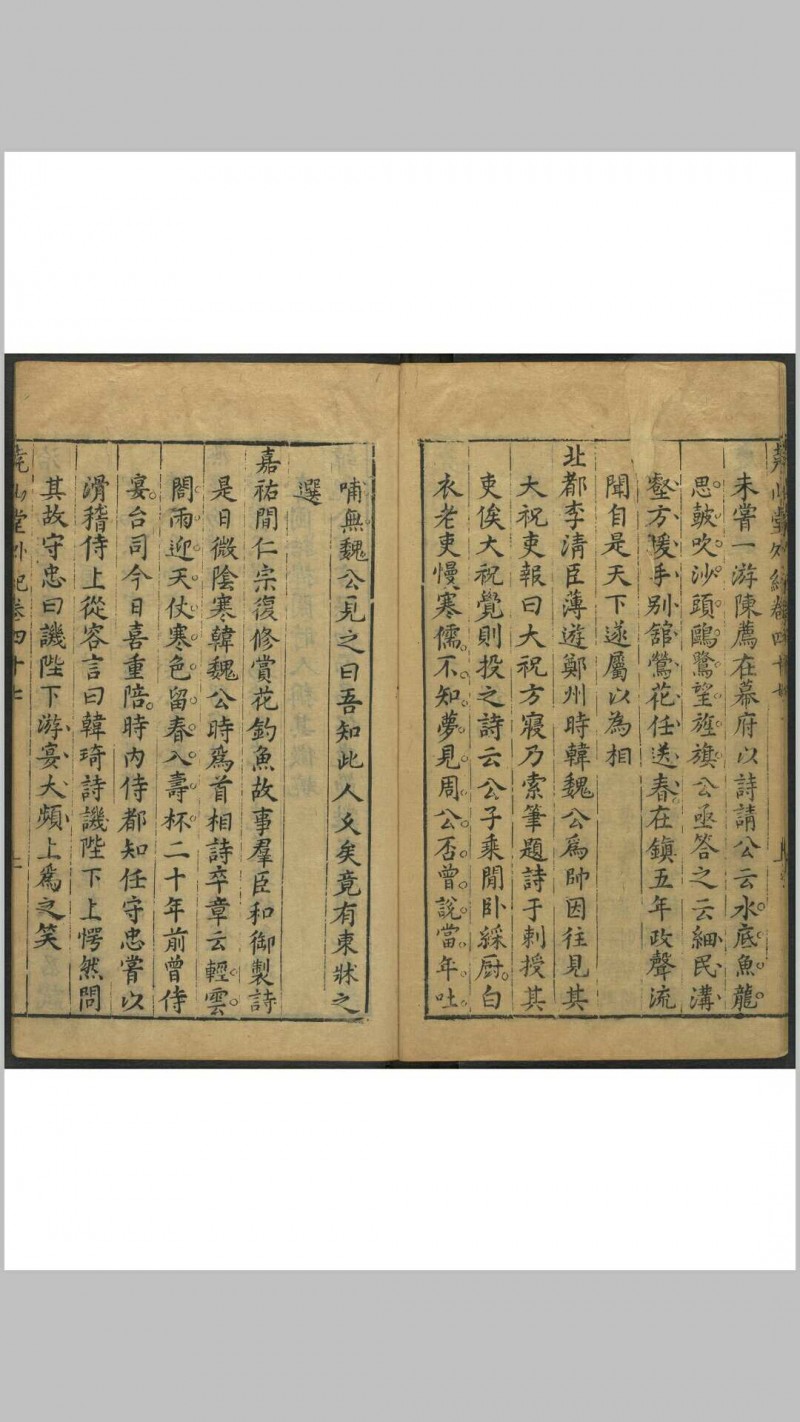 未嘗一游陳薦在幕府以詩請公云水底魚龍
思皷吹沙頭鷗鷺望旌旗公亟答之云細民溝
壑方援手別舘鶯花任送春在鎮五年政聲流
聞自是天下遂屬以為相
北都李清臣薄遊鄭州時韓魏公爲帥因往見其
大祝吏報曰大祝方寢乃索筆題詩于刺授其
吏俟大祝覺則投之詩云公子乘閒卧綵厨白
衣老吏慢寒儒不知夢見周公否曾說當年吐
哺無魏公見之曰吾知此人久矣竟有東牀之
選
嘉祐間仁宗復修賞花釣魚故事羣臣和御製詩
是日微陰寒韓魏公時爲首相詩卒章云輕雲
閣雨迎天仗寒色留春入壽杯二十年前曾侍
宴台司今日喜重陪時内侍都知任守忠嘗以
滑稽侍上從容言曰韓琦詩譏陛下上愕然問
其故守忠曰譏陛下游宴太頻上爲之笑
堯山堂外紀卷四十七